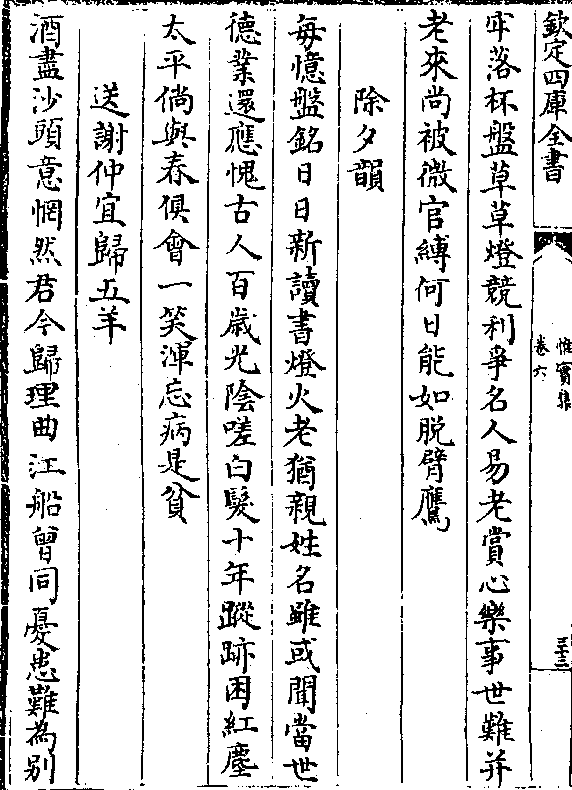 欽定四庫全書
惟實集
卷六
三十三
牢落杯盤草草燈競利爭名人易老賞心樂事世難并
老來尚被微官縛何日能如脱臂鷹
除夕韻
每憶盤銘日日新讀書燈火老猶親姓名雖或聞當世
德業還應愧古人百歲光陰嗟白髮十年蹤跡困紅塵
太平倘與春俱會一笑渾忘病是貧
送謝仲宜歸五羊
酒盡沙頭意惘然君今歸理曲江船曾同憂患難為别